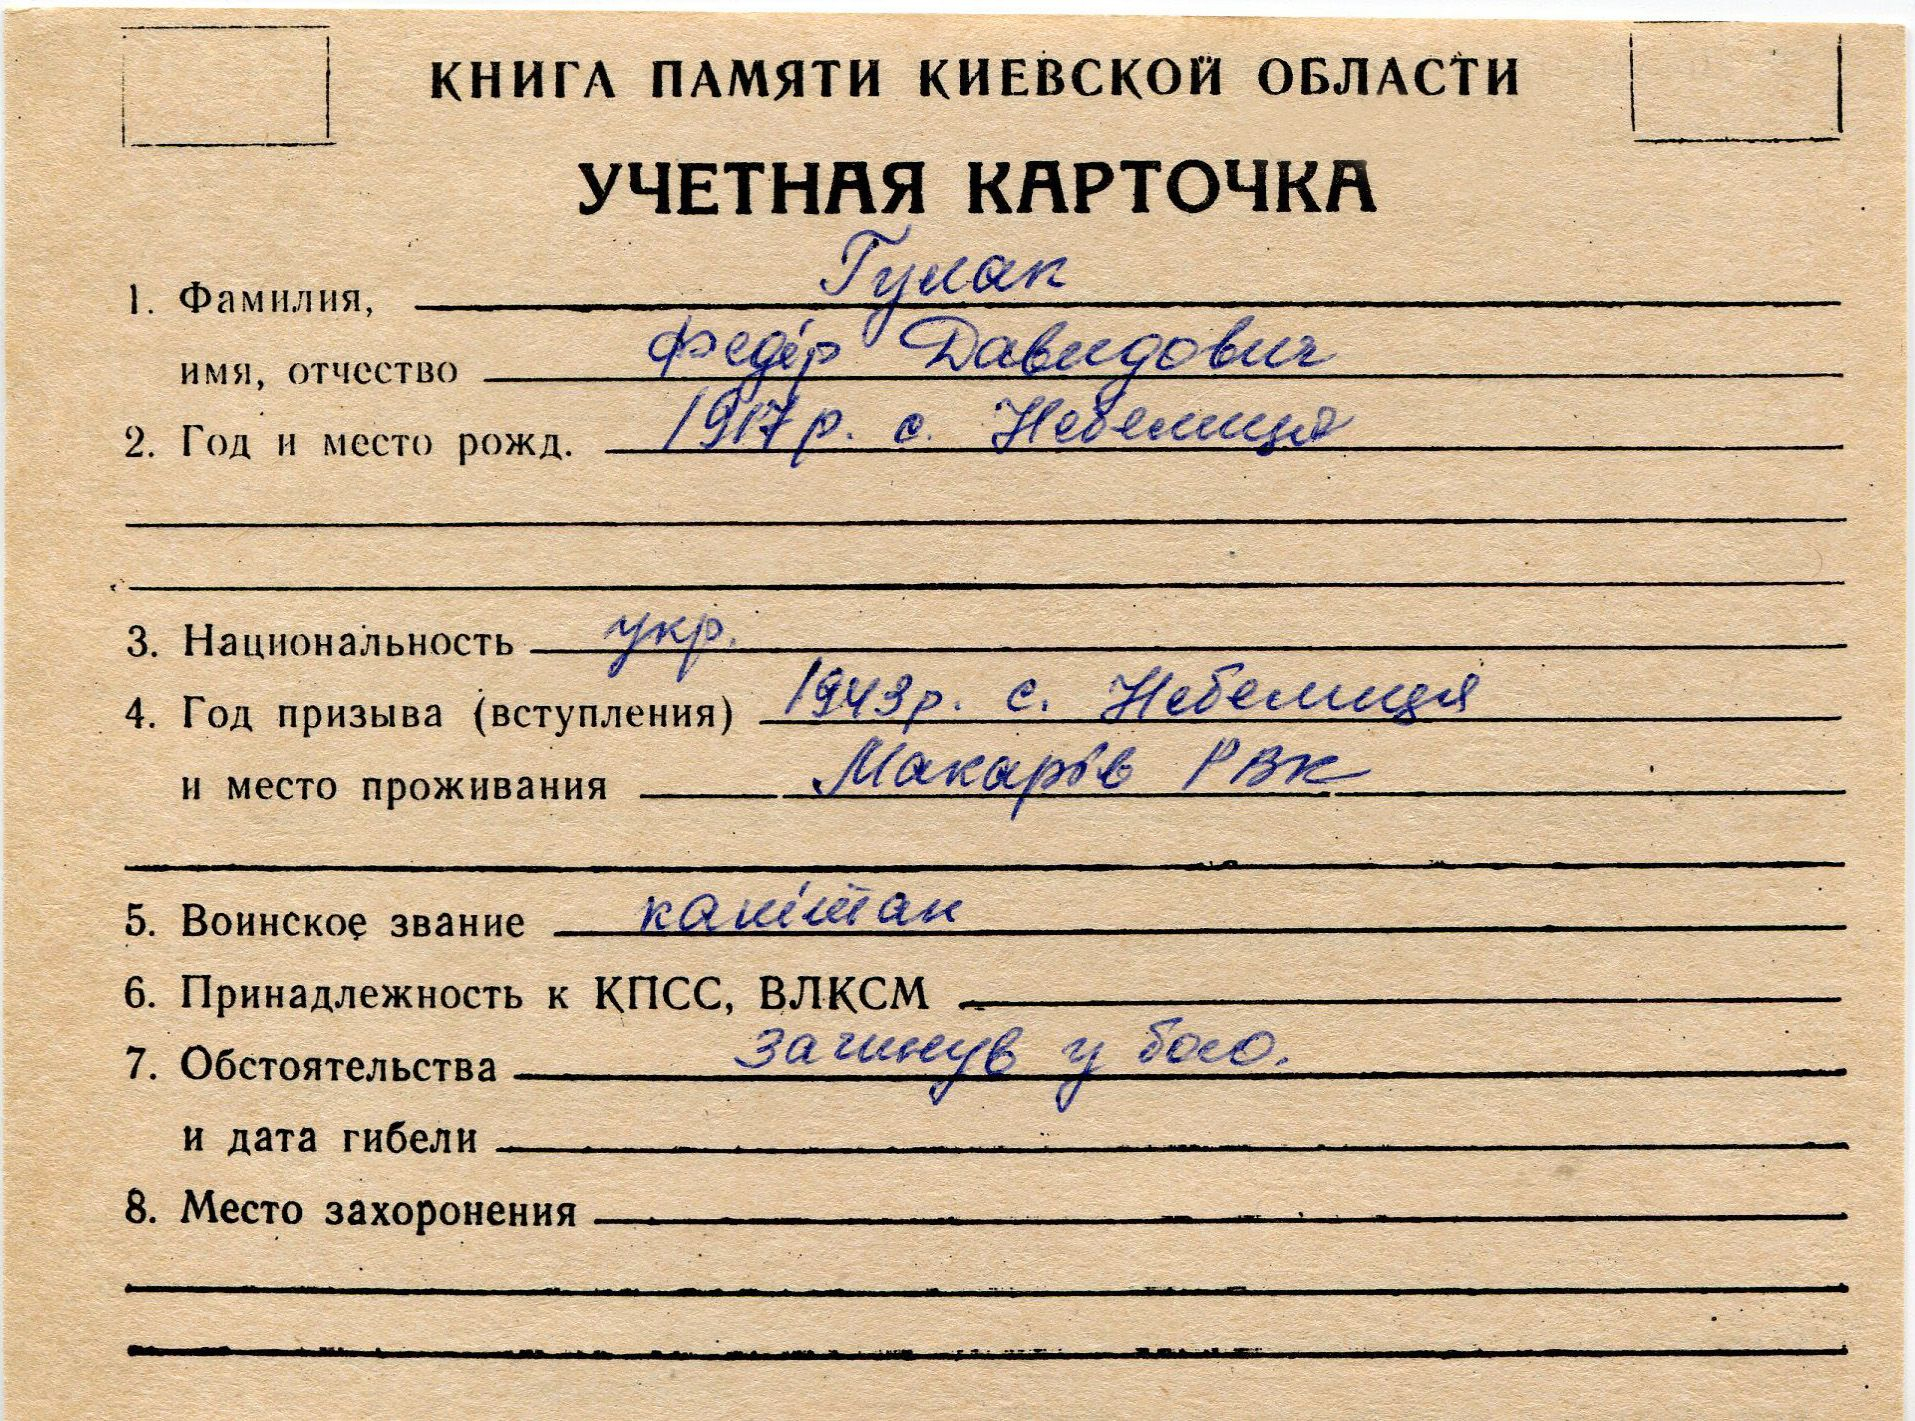 КНИГА ПАМЯТИ КИЕВСКОЙ ОБЛАСТИ
УЧЕТНАЯ КАРТОЧКА
1. Фамилия, Гулак
имя, отчество Федір Давидович
2. Год и место рожд. 1917 р. с. Небелиця
3. Национальность укр.
4. Год призыва (вступления) 1943 р. с. Небелиця
и место проживания Макарів РВК
5. Воинское звание капітан
6. Принадлежность к КПСС, ВЛКСМ
7. Обстоятельства загинув у бою.
и дата гибели
8. Место захоронения